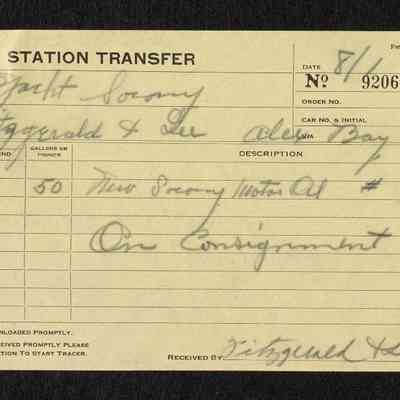 STATION TRANSFER
DATE 8/1
No. 9206
Yacht Socony
ORDER NO.
CAR NO. & INITIAL
tzgerald & Lee Alex Bay
VIA
GALLONS OR POUNDS
DESCRIPTION
50 New Socony Motor Oil #
On Consignment
NLOADED PROMPTLY.
CEIVED PROMPTLY PLEASE
TION TO START TRACER.
RECEIVED BY Fitzgerald & L